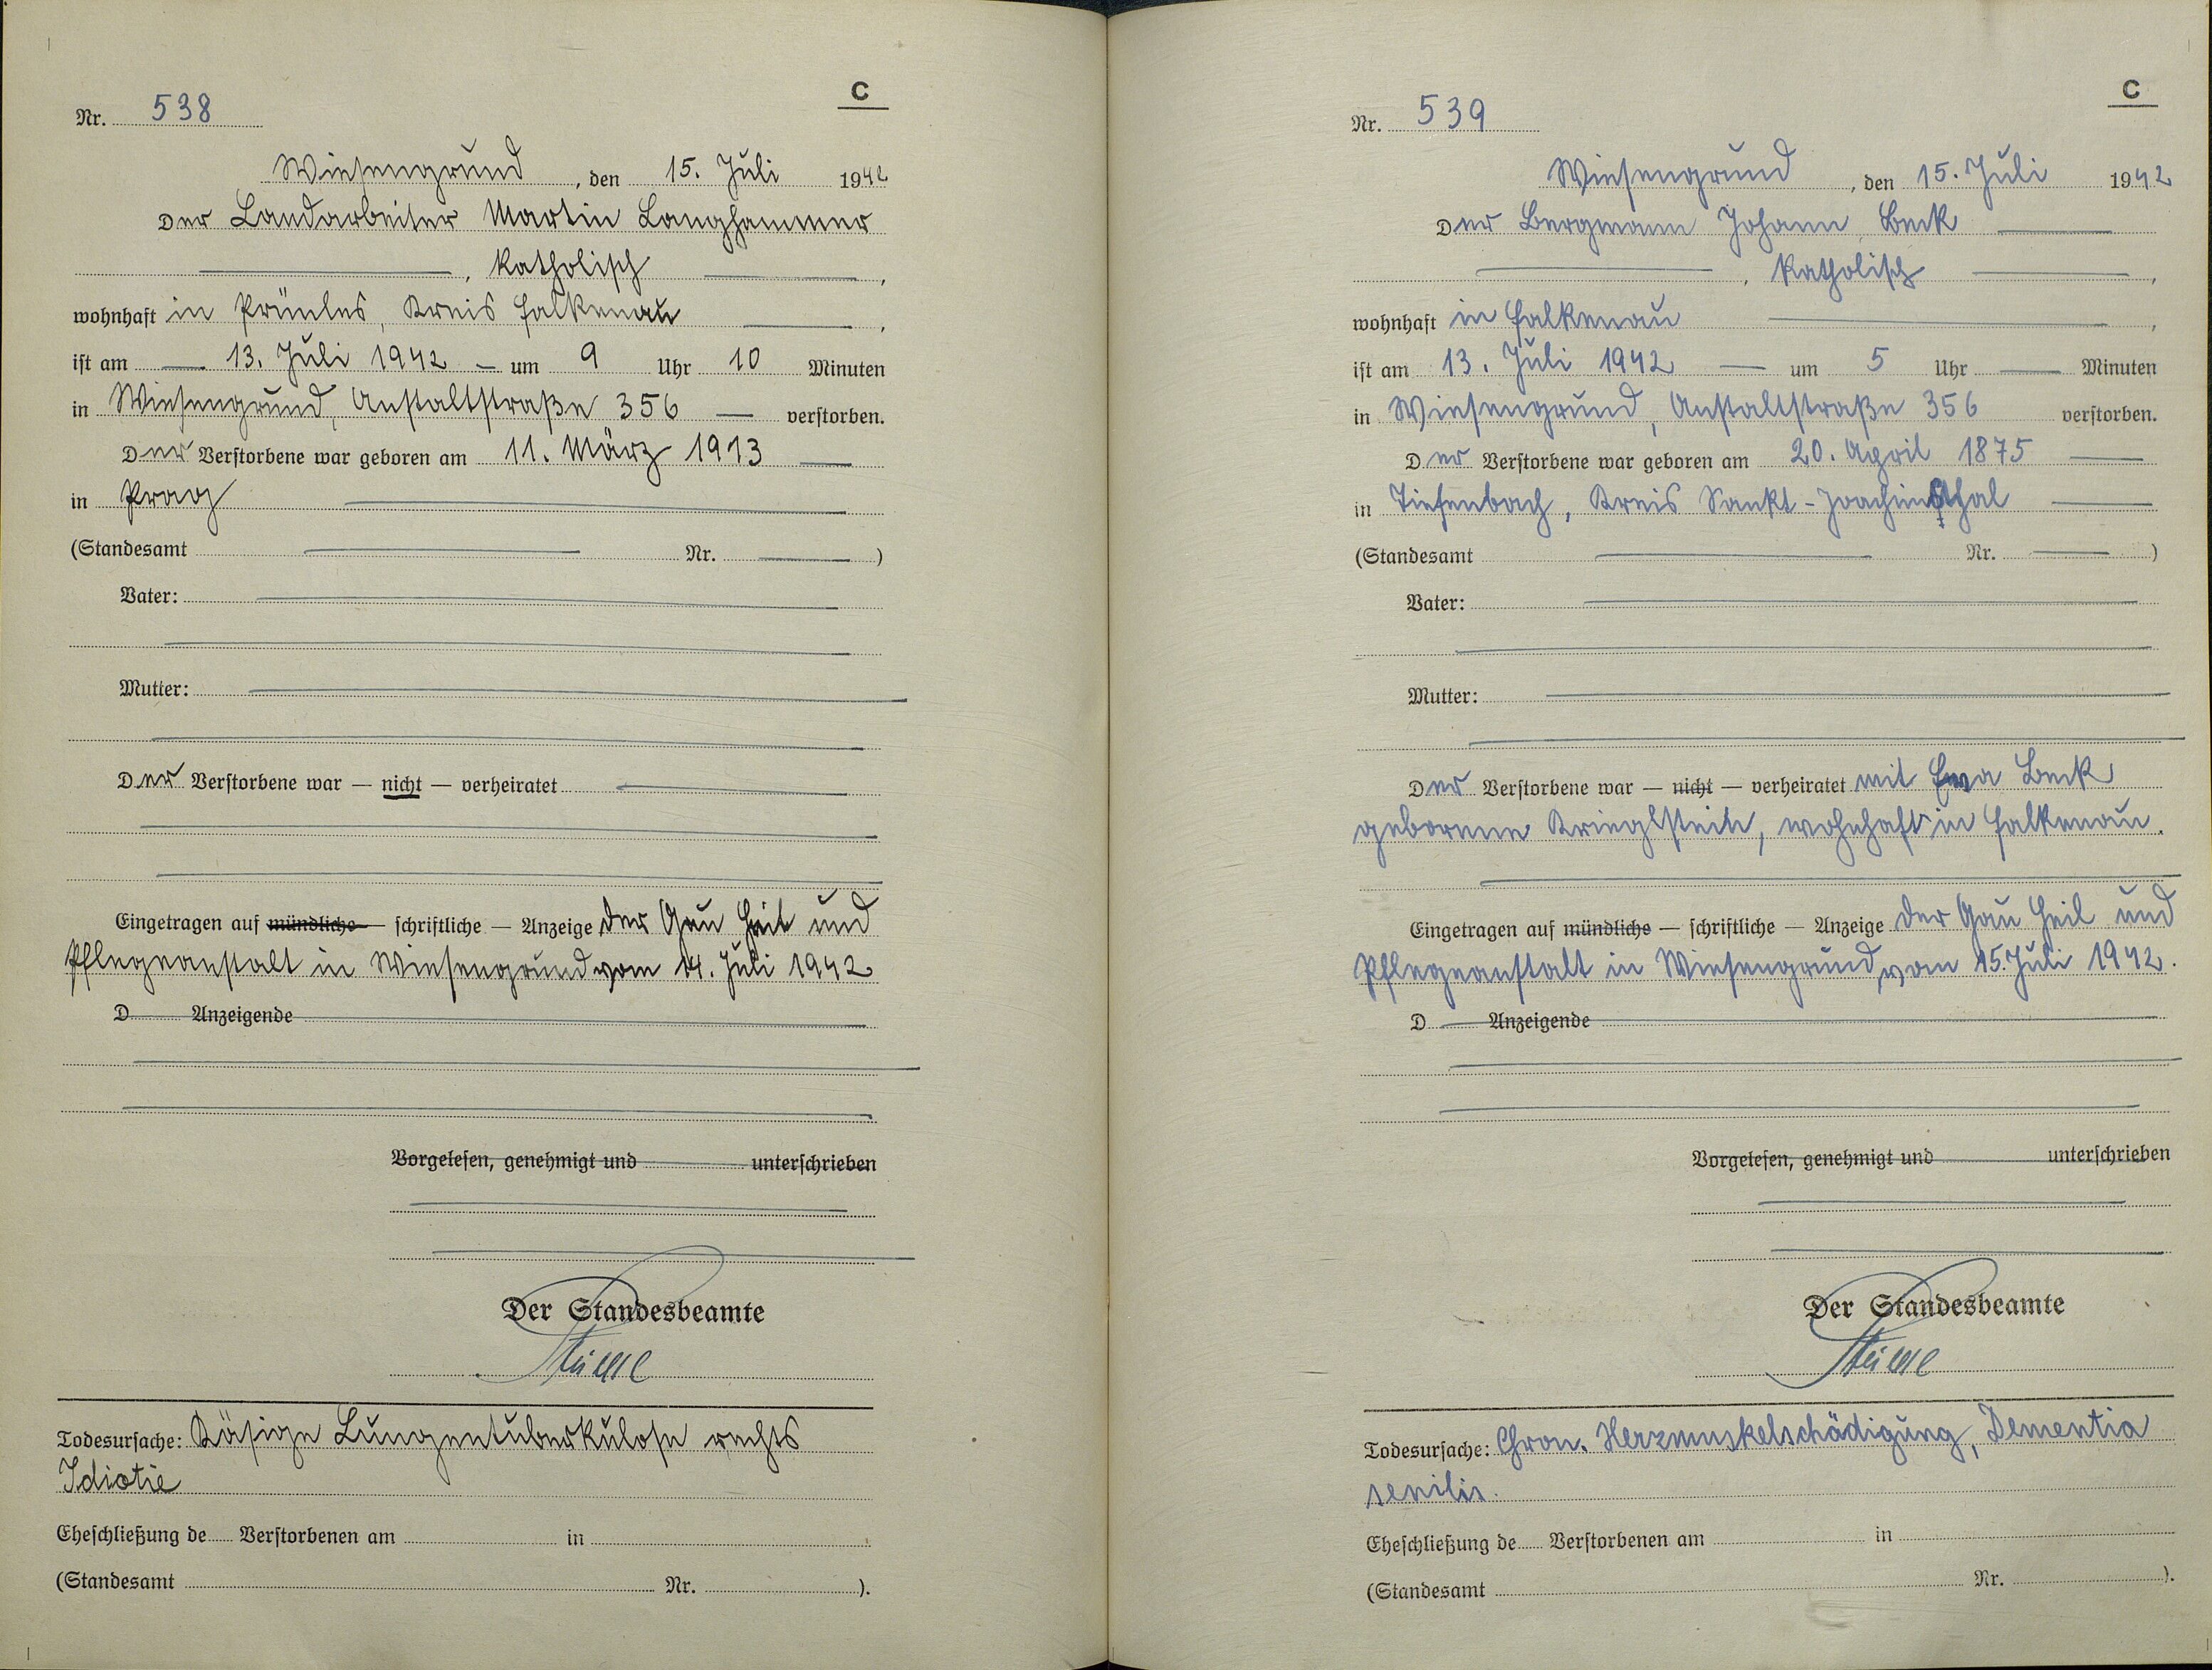 C
Nr. 538
Wiesengrund, den 15. Juli 1942
Der Landarbeiter Martin Langhammer
, katholisch ,
wohnhaft in Prünles, Kreis Falkenau ,
ist am 13. Juli 1942 um 9 Uhr 10 Minuten
in Wiesengrund, Anstaltstraße 356 verstorben.
Der Verstorbene war geboren am 11. März 1913
in Prag
(Standesamt Nr. )
Vater:
Mutter:
Der Verstorbene war — nicht — verheiratet
Eingetragen auf mündliche — schriftliche — Anzeige der Gau Heil und
Pflegeanstalt in Wiesengrund vom 14. Juli 1942
D Anzeigende
Vorgelesen, genehmigt und unterschrieben
Der Standesbeamte
Todesursache: Käsige Lungentuberkulose rechts
Idiotie
Eheschließung de Verstorbenen am in
(Standesamt Nr. ).
C
Nr. 539
Wiesengrund, den 15. Juli 1942
Der Bergmann Johann Beck
, katholisch ,
wohnhaft in Falkenau ,
ist am 13. Juli 1942 um 5 Uhr Minuten
in Wiesengrund, Anstaltstraße 356 verstorben.
Der Verstorbene war geboren am 20. April 1875
in Tiefenbach, Kreis Sankt-Joachimsthal
(Standesamt Nr. )
Vater:
Mutter:
Der Verstorbene war — nicht — verheiratet mit Eva Beck
geborene Krieglstein, wohnhaft in Falkenau.
Eingetragen auf mündliche — schriftliche — Anzeige der Gau Heil und
Pflegeanstalt in Wiesengrund, vom 15. Juli 1942.
D Anzeigende
Vorgelesen, genehmigt und unterschrieben
Der Standesbeamte
Todesursache: Chron. Herzmuskelschädigung, Dementia
senilis.
Eheschließung de Verstorbenen am in
(Standesamt Nr. ).